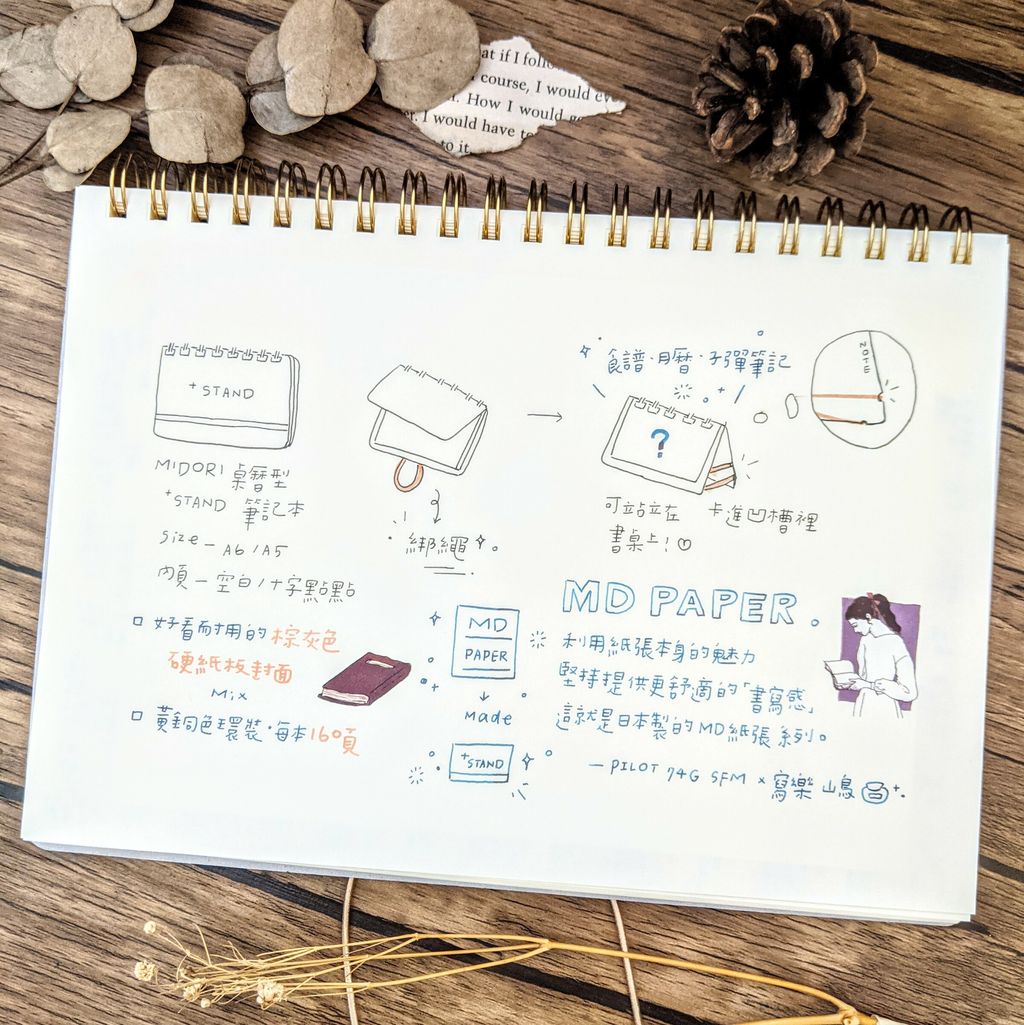 at if I follo
course, I would eve
. How I would g
r. I would have to
to it.
+STAND
MIDORI 桌曆型
+STAND 筆記本
size - A6 / A5
內頁 - 空白 / 十字點點
綁繩
食譜·月曆·子彈筆記
?
NOTE
可站立在
書桌上!
卡進凹槽裡
□ 好看耐用的 棕灰色
硬紙板封面
Mix
□ 黃銅色環裝·每本160頁
MD
PAPER
↓
Made
+STAND
MD PAPER。
利用紙張本身的魅力
堅持提供更舒適的「書寫感」
這就是日本製的MD紙張系列。
— PILOT 74G SFM × 寫樂 山鳥